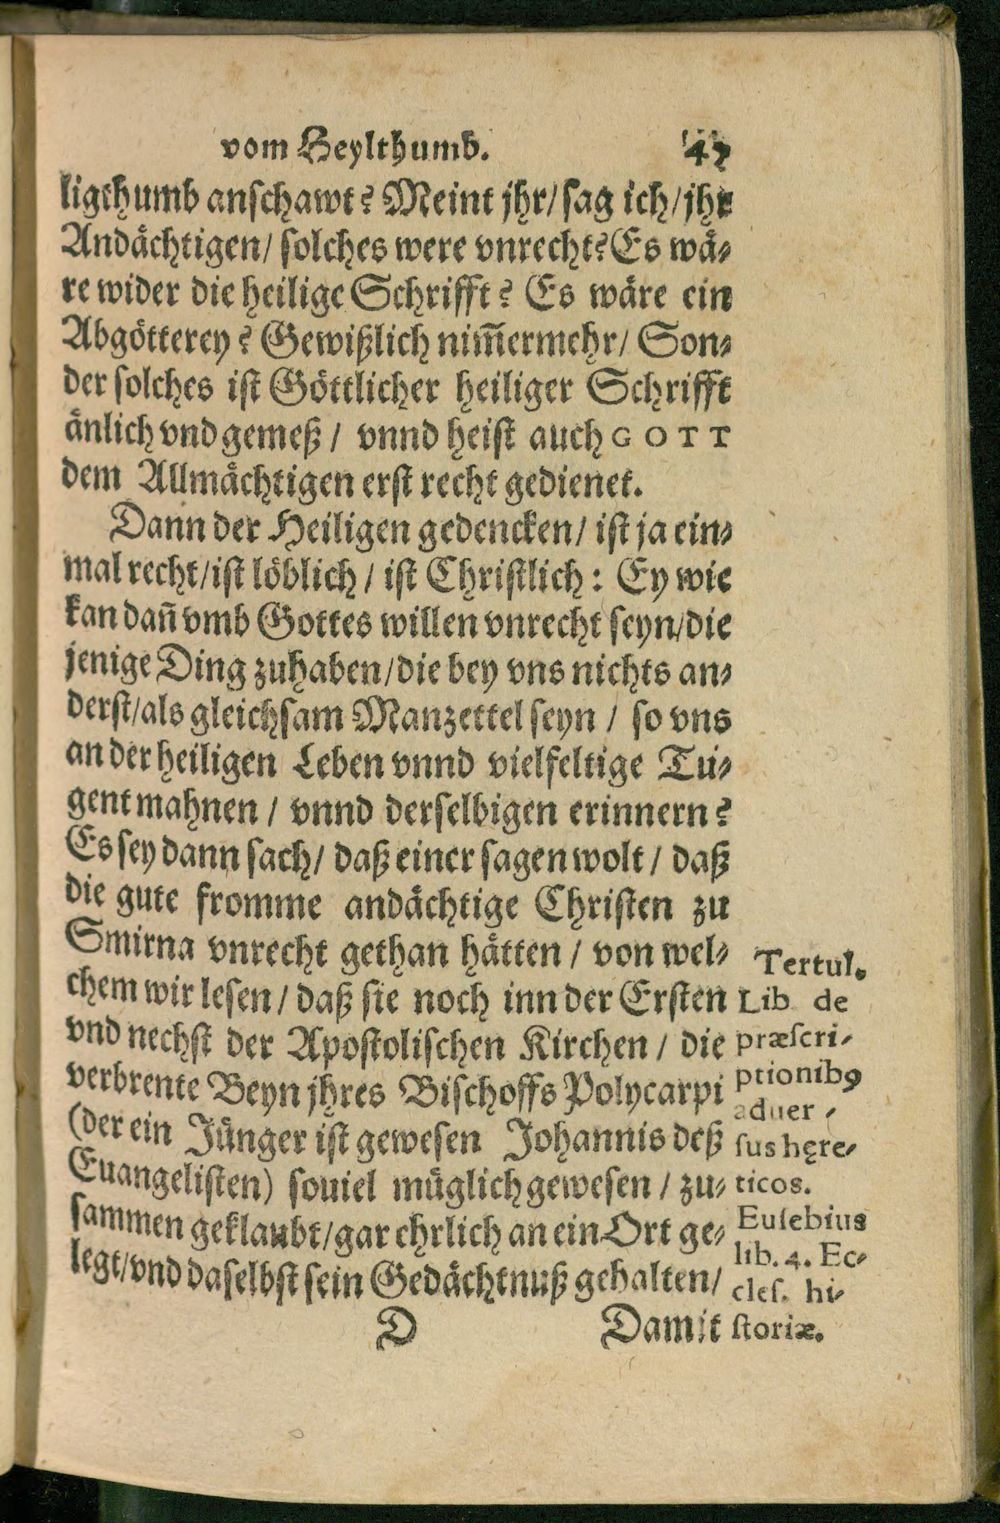 vom Heylthumb. 47
ligthumb anschawt? Meint jhr/ sag ich/ jhr
Andächtigen/ solches were vnrecht? Es wä⸗
re wider die heilige Schrifft? Es wäre ein
Abgötterey? Gewißlich nim̃ermehr/ Son⸗
der solches ist Göttlicher heiliger Schrifft
änlich vnd gemeß / vnnd heist auch GOTT
dem Allmächtigen erst recht gedienet.
Dann der Heiligen gedencken/ ist ja ein⸗
mal recht/ ist löblich / ist Christlich: Ey wie
kan dañ vmb Gottes willen vnrecht seyn/ die
jenige Ding zuhaben/ die bey vns nichts an⸗
derst/ als gleichsam Manzettel seyn / so vns
an der heiligen Leben vnnd vielfeltige Tu⸗
gent mahnen / vnnd derselbigen erinnern?
Es sey dann sach/ daß einer sagen wolt / daß
die gute fromme andächtige Christen zu
Smirna vnrecht gethan hätten / von wel⸗
chem wir lesen / daß sie noch inn der Ersten
vnd nechst der Apostolischen Kirchen / die
verbrente Beyn jhres Bischoffs Polycarpi
(der ein Jünger ist gewesen Johannis deß
Euangelisten) souiel müglich gewesen / zu⸗
sammen geklaubt/ gar ehrlich an ein Ort ge⸗
legt/ vnd daselbst sein Gedächtnuß gehalten/
D Damit
Tertul.
Lib de
præscri⸗
ptionibꝰ
aduer⸗
sus hęre⸗
ticos.
Eusebius
lib. 4. Ec⸗
cles. hi⸗
storiæ.